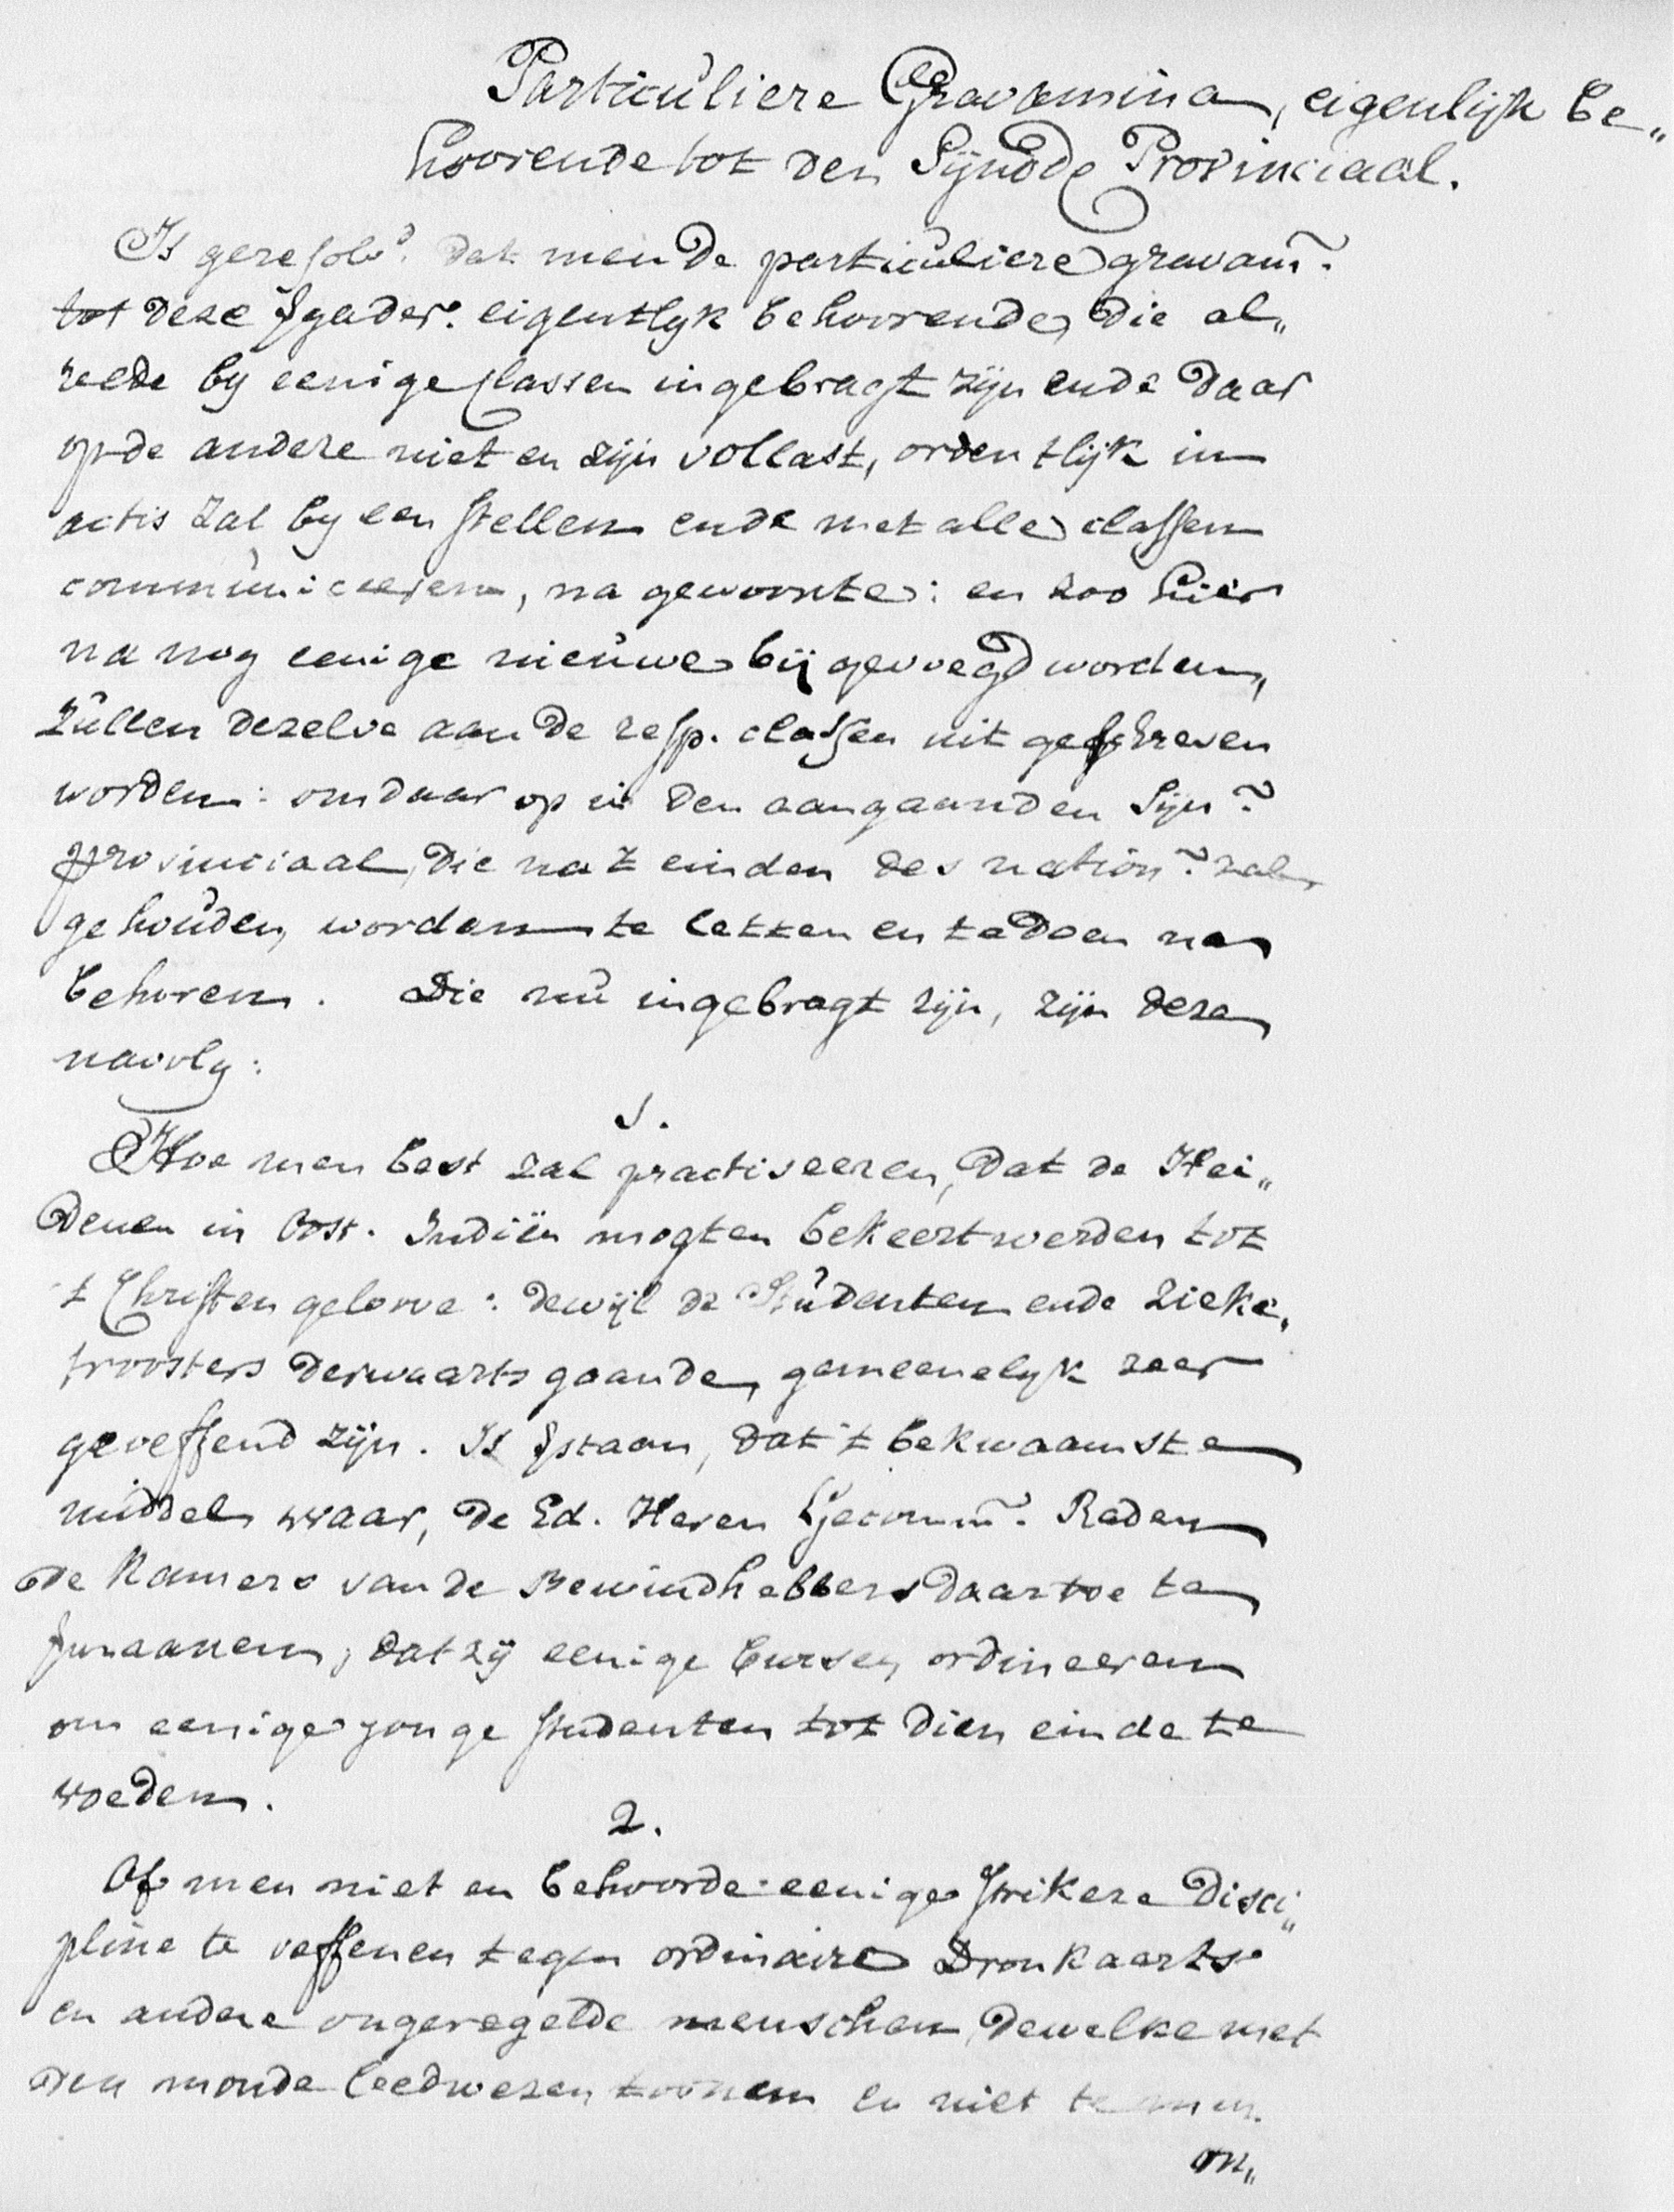 Particuliere Gravamina, eigenlijk be„
hoorende tot den Sijnode Provinciaal.
Is geresolv.d dat men de particuliere gravam̃.
tot deze vgader. eigentlyk behoorende, die al„
reede by eenige classen ingebragt zijn ende daar
op de andere niet en zijn vollast, ordentlijk in
actis zal by een stellen ende met alle classen
communiceeren, na gewoonte: en zoo hier
na nog eenige nieuwe bij gevoegd worden,
zullen dezelve aan de resp. classen uit geschreven
worden: om daar op in den aangaanden Sijn.
provinciaal, die na t einden des nation. zal
gehouden worden te letten en te doen na
behoren. Die nu ingebragt zijn, zijn deze
navolg:
1.
Hoe men best zal practiseeren, dat de Hei„
denen in Oost. Indiën mogten bekeert werden tot
t Christen geloove: dewijl de Studenten ende zieke„
troosters derwaarts gaande, gemeenelyk zeer
ongeoeffend zijn. Is vstaan, dat t bekwaamste
middel waar, de Ed. Heren Gecomm̃. Raden
de Kamers van de Bewindhebbers daartoe te
vmaanen, dat zij eenige bursen ordineeren
om eenige jonge studenten tot dien einde te
voeden.
2.
Of men niet en behoorde eenige strikere Disci„
pline te oeffenen tegen ordinaire Dronkaarts
en andere ongeregelde menschen, dewelke met
den monde leedwezen toonen en niet te min.
on„